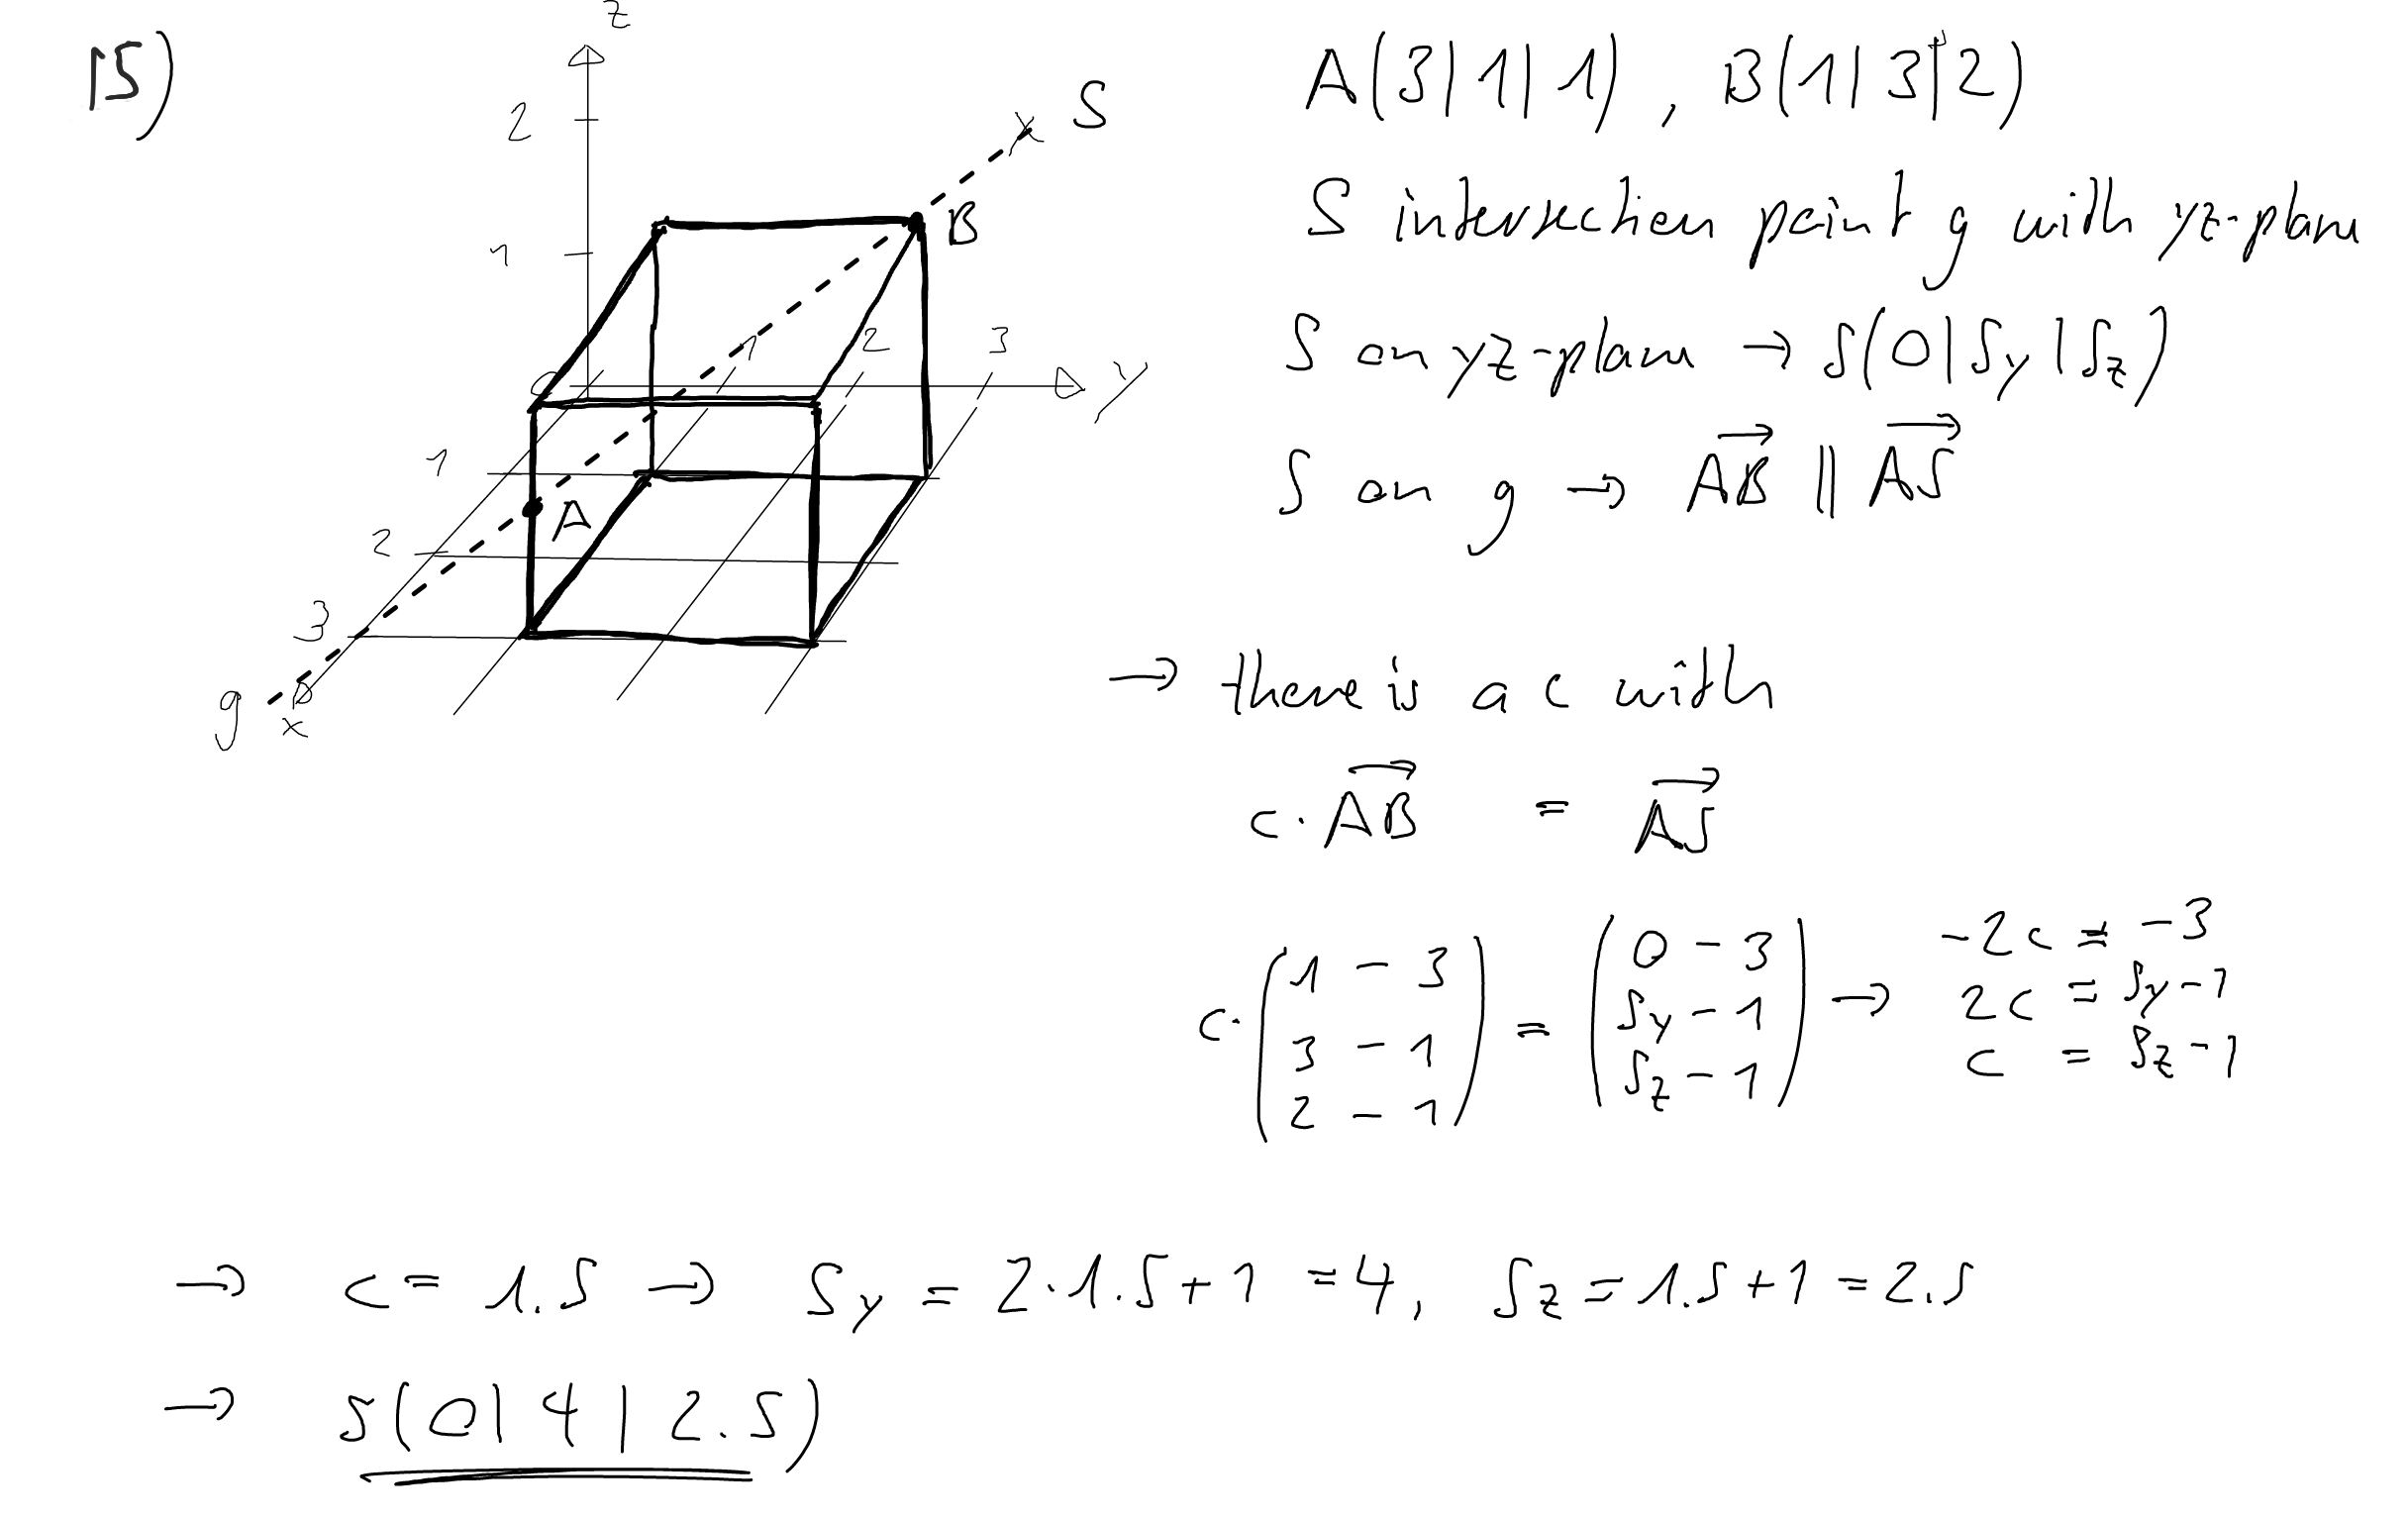 15)
z
2
1
S
B
0
1
2
3
y
1
A
2
3
g
x
A(3|1|1), B(1|3|2)
S intersection point g with yz-plane
S on yz-plane → S(0|Sy|Sz)
S on g → AB || AS
→ there is a c with
c · AB = AS
c · (1 - 3 3 - 1 2 - 1) = (0 - 3 Sy - 1 Sz - 1) →
-2c = -3
2c = Sy - 1
c = Sz - 1
→ c = 1.5 → Sy = 2 · 1.5 + 1 = 4, Sz = 1.5 + 1 = 2.5
→ S(0|4|2.5)